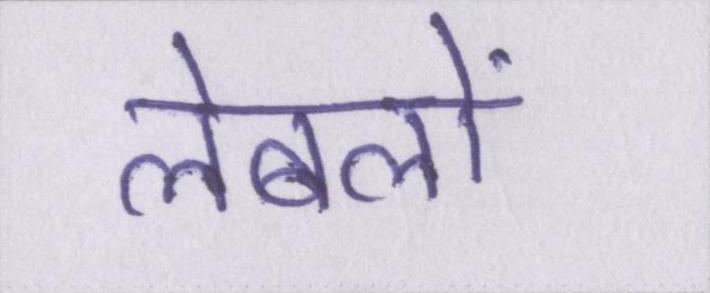 लेबलों